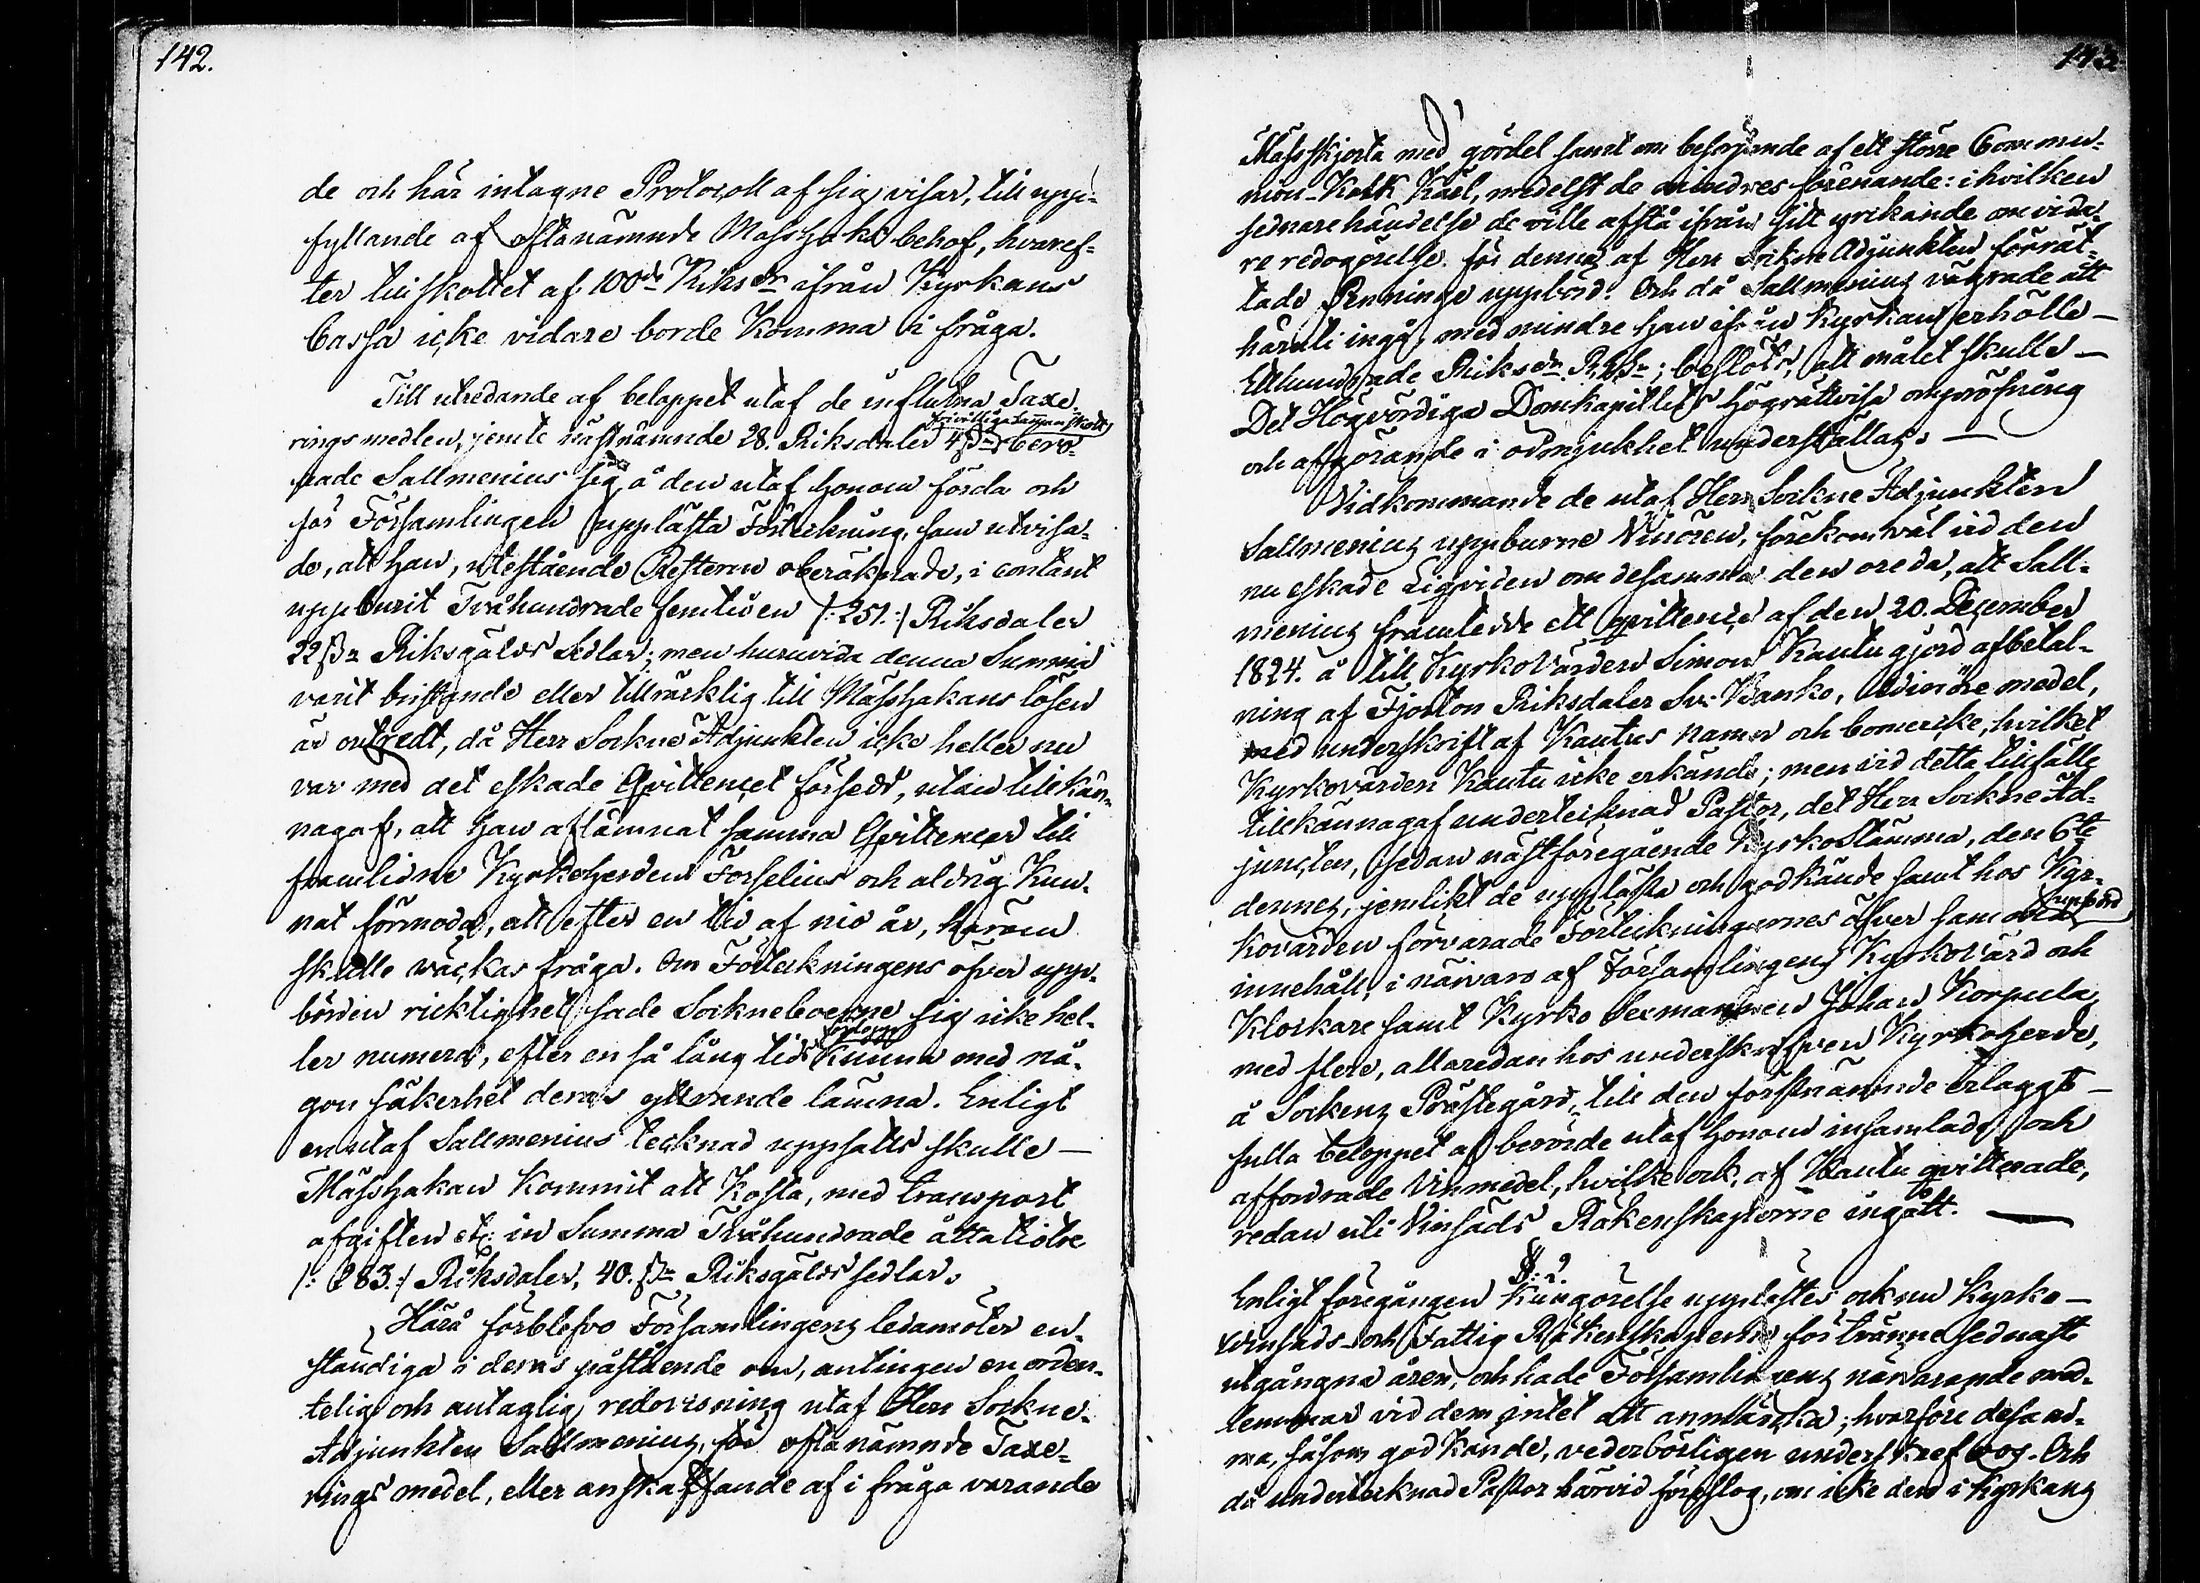 142.
de och här intagne Protocoll af sig visar, till upp-
fyllande af oftanämnde Messhake behof, hvaref-
ter tillskottet af 100de Riksdr ifrån Kyrkans
Cassa icke vidare borde komma i fråga.
Till utredande af beloppet utaf de influtna Taxe-
frivilliga sammanskott
ringsmedlen, jemte nästnämnde 28. Riksdaler 4 s. bero-
pade Sallmenius sig å den utaf honom förda och
för Församlingen upplästa Förteckning, som utvisa-
de, att han, utestående Resterne oberäknade, i contant
uppburit Tvåhundrade femtioen /: 251. :/ Riksdaler
22 s. Riksgälds Sedlar; men huruvida denna Summa
varit bristande eller tillräcklig till Mässhakans lösen
är outredt, då Herr Sockne Adjunkten icke heller nu
var med det eskade Qvittencet försedt, utan tillkän-
nagaf, att han aflämnat samma Qvittencer till
framlidne Kyrkoherden Forselius och aldrig kun-
nat förmoda, att efter en tid af nio år, härom
skulle väckas fråga. Om Förteckningens öfver upp-
börden ricktighet sade Sockneboerne sig icke hel-
förlopp
ler numera, efter en så lång tids kunna med nå-
gon säkerhet deras yttrande lämna. Enligt
en utaf Sallmenius tecknad uppsatts skulle —
Mässhakan kommit att kosta, med transport
afgiften etc: in Summa Tvåhundrade åttatiotre
/: 283. :/ Riksdaler, 40. s. Riksgälds sedlar.
Härå förblefvo Församlingens ledamöter en-
ständiga i deras påstående om, antingen en orden-
telig och antaglig redovisning utaf Herr Sockne-
Adjunkten Sallmenius, för oftanämnde Taxe-
rings medel, eller anskaffande af i fråga varande
143
Mässskjorta med gördel samt om besörjande af ett större Commu-
nion-Kalk Käril, medelst de mindres förenande: i hvilken
sednare händelse de ville afstå ifrån sitt yrkande om vida-
re redogörelse för denna af Herr Sockne Adjunkten förrät-
tade Penninge uppbörd. Och då Sallmenius vägrade att
häruti ingå, med mindre han ifrån Kyrkan erhölle —
Etthundrade Riksdr Rgs; beslöts, att målet skulle —
Det Högvördiga Domkapitlets högrättvisa ompröfning
och afgörande i ödmjukhet underställas. —
Vidkommande de utaf Herr Sockne Adjunkten
Sallmenius uppburne Vinören, förekom väl vid den
nu eskade Liqviden om desamma den oreda, att Sall-
menius framtedde ett qvittence af den 20. December
1824. å till Kyrkovärden Simon Kautu gjord afbetal-
ning af Fjorton Riksdaler Sv: Banko, Vinöre medel,
med underskrift af Kautus namn och bomercke, hvilket
Kyrkovärden Kautu icke erkände; men vid detta tillfälle
tillkännagaf undertecknad Pastor, det Herr Sockne Ad-
juncten, sedan nästföregående Kyrkostämma, den 6te
dennes, jemlikt de upplästa och godkände samt hos Kyr-
uppbörd
kovärden förvarade Förteckningarnes öfver samma
innehåll, i närvaro af Församlingens Kyrkovärd och
Klockare samt Kyrko Sexmannen Johan Korpula
med flere, allaredan hos underskrifven Kyrkoherde,
å Sockens Prästegård, till den förstnämnde erlaggt —
fulla beloppet af berörde utaf honom insamlade och
affordrade Vinmedel, hvilke ock, af Kautu qvitterade,
redan uti Vinsäds Räkenskaperne ingått. —
§. 2.
Enligt föregången kungörelse upplästes ock nu Kyrko —
Vinsäds- och Fattig Räkenskaperne för tvänne sednast
utgångna åren, och hade Församlingens närvarande med-
lemmar vid dem intet att anmärcka; hvarföre desam-
ma, såsom godkände, vederbörligen underskrefvos. Och
då undertecknad Pastor härvid föreslog, om icke den i Kyrkans